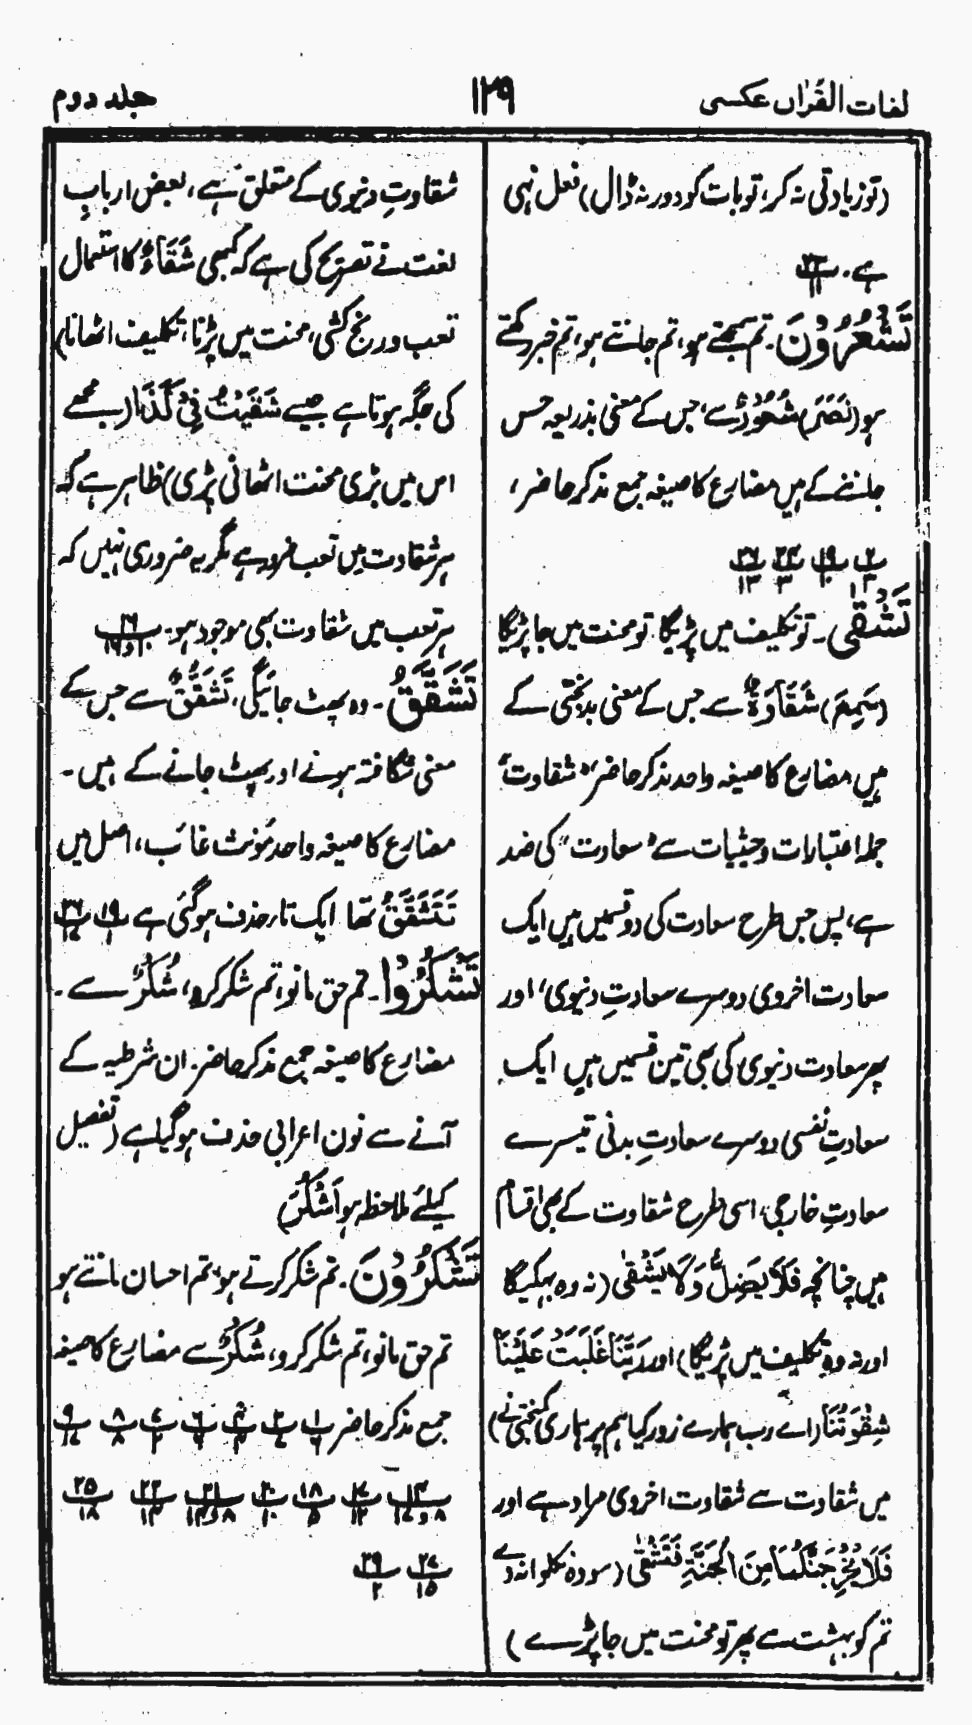 لغات القرآن عکسی
۱۲۹
جلد دوم
(تو زیادتی نہ کر، تو بات کو دور نہ ڈال) فعل نہی
ہے۔ پ
تَشْعُرُوْنَ۔ تم سمجھتے ہو، تم جانتے ہو، تم خبر رکھتے
ہو (نَصَرَ) شُعُوْرٌ سے، جس کے معنی بذریعہ حس
جاننے کے ہیں مضارع کا صیغہ جمع مذکر حاضر،
پ۲/۳ پ۱۹/۱۰ پ۲۴/۳ پ۲۶/۱۳
تَشْقٰی۔ تو تکلیف میں پڑیگا تو محنت میں جا پڑیگا
(سَمِعَ) شَقَاوَۃٌ سے جس کے معنی بدبختی کے
ہیں مضارع کا صیغہ واحد مذکر حاضر، "شقاوت"
جملہ اعتبارات و حیثیات سے "سعادت" کی ضد
ہے، پس جس طرح سعادت کی دو قسمیں ہیں ایک
سعادت اخروی دوسرے سعادتِ دنیوی، اور
پھر سعادت دنیوی کی بھی تین قسمیں ہیں ایک
سعادتِ نفسی دوسرے سعادتِ بدنی تیسرے
سعادتِ خارجی، اسی طرح شقاوت کے بھی اقسام
ہیں چنانچہ فَلَا یَضِلُّ وَلَا یَشْقٰی (نہ وہ بہکیگا
اور نہ وہ تکلیف میں پڑیگا) اور رَبَّنَا غَلَبَتْ عَلَیْنَا
شِقْوَتُنَا (اے رب ہمارے زور کیا ہم پر ہماری کمبختی نے)
میں شقاوت سے شقاوت اخروی مراد ہے اور
فَلَا یُخْرِجَنَّکُمَا مِنَ الْجَنَّۃِ فَتَشْقٰی (سو وہ نکلوا نہ دے
تم کو بہشت سے پھر تو محنت میں جا پڑے)
شقاوتِ دنیوی کے متعلق ہے، بعض اربابِ
لغت نے تصریح کی ہے کہ کبھی شَقَاءٌ کا استعمال
تعب و رنج کشی، محنت میں پڑنا، تکلیف اٹھانا)
کی جگہ ہوتا ہے جیسے شَقَیْتُ فِیْ کَذَا (مجھے
اس میں بڑی محنت اٹھانی پڑی) ظاہر ہے کہ
ہر شقاوت میں تعب ضرور ہے مگر یہ ضروری نہیں کہ
ہر تعب میں شقاوت بھی موجود ہو۔ پ
تَشَقَّقُ۔ وہ پھٹ جائیگی، تَشَقُّقٌ سے جس کے
معنی شگافتہ ہونے اور پھٹ جانے کے ہیں۔
مضارع کا صیغہ واحد مؤنث غائب، اصل میں
تَتَشَقَّقُ تھا ایک تار حذف ہو گئی ہے پ۱۹/۱ پ۲۶/۱۷
تَشْکُرُوْا۔ تم حق مانو، تم شکر کرو، شُکْرٌ سے۔
مضارع کا صیغہ جمع مذکر حاضر۔ ان شرطیہ کے
آنے سے نون اعرابی حذف ہو گیا ہے (تفصیل
کیلئے ملاحظہ ہو اَشْکُرَ)
تَشْکُرُوْنَ۔ تم شکر کرتے ہو، تم احسان مانتے ہو
تم حق مانو، تم شکر کرو، شُکْرٌ سے مضارع کا صیغہ
جمع مذکر حاضر پ۱/۶ پ۲/۷ پ۴/۴ پ۶/۶ پ۷/۲ پ۸/۸ پ۹/۱۷
پ۱۴/۸و۱۷ پ۱۷/۱۲ پ۱۸/۵ پ۲۰/۱۰ پ۲۱/۸و۱۴ پ۲۲/۱۴ پ۲۵/۱۸
پ۲۷/۱۵ پ۲۹/۲